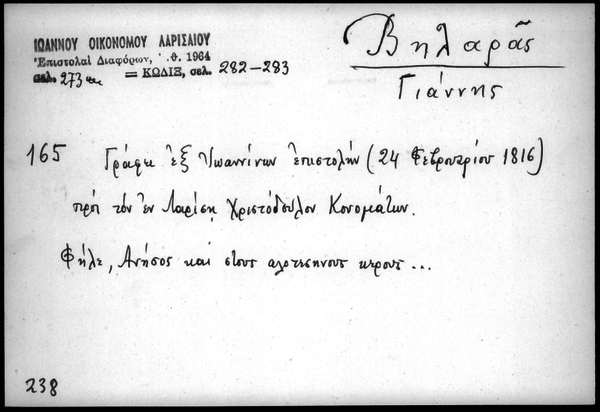 ΙΩΑΝΝΟΥ ΟΙΚΟΝΟΜΟΥ ΛΑΡΙΣΑΙΟΥ
Ἐπιστολαὶ Διαφόρων, 1964
σελ. 273 = ΚΩΔΙΞ, σελ. 282-283
Βηλαρᾶς
Γιάννης
165 Γράφει ἐξ Ἰωαννίνων ἐπιστολήν (24 Φεβρουαρίου 1816)
πρὸς τὸν ἐν Λαρίσῃ Χριστόδουλον Κονομάτων.
Φήλε, Ανήσος και στους καιρους ...
238